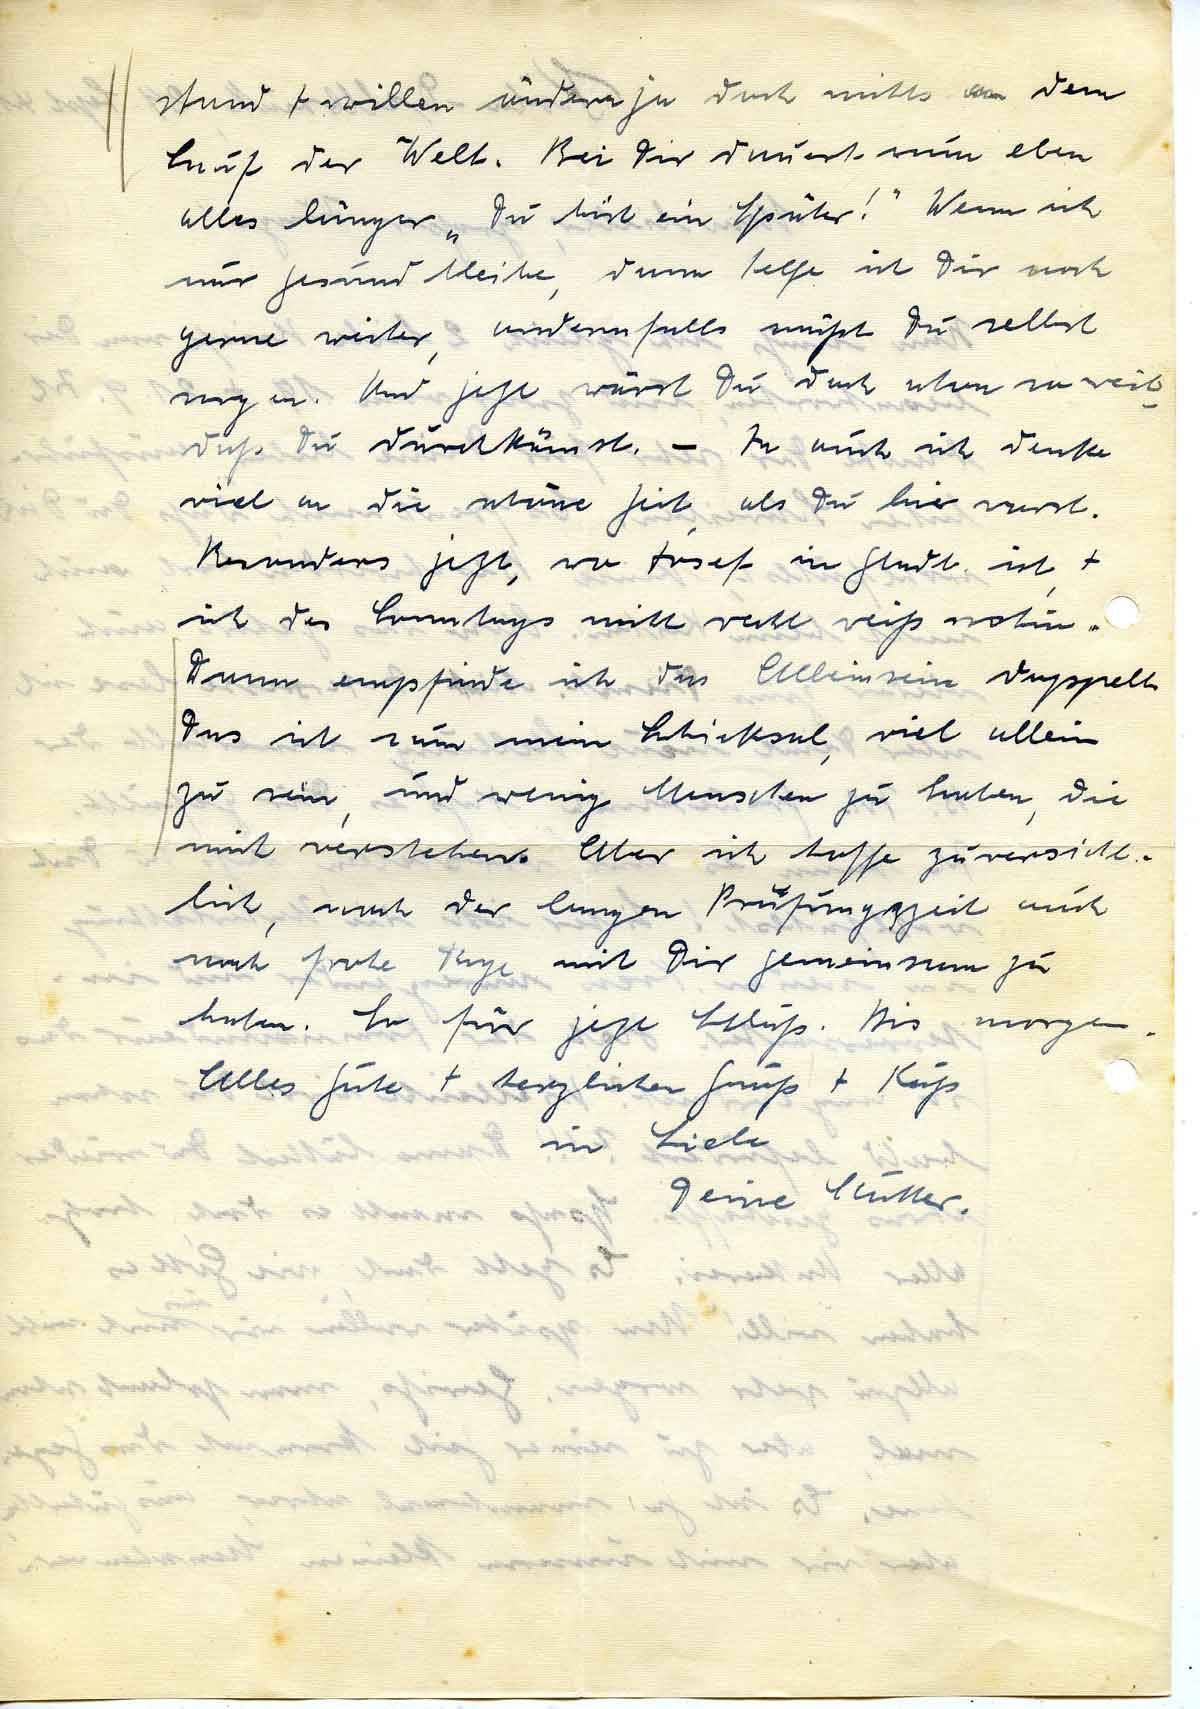 stand + willen ändern ja doch nichts an dem
Lauf der Welt. Bei Dir dauert nun eben
alles länger „Du bist ein Später!" Wenn ich
nur gesund bleibe, dann helfe ich Dir noch
gerne weiter, andernfalls mußt Du selbst
sorgen. Und jetzt wärst Du doch schon so weit
daß Du durchkämst. – Ja auch ich denke
viel an die schöne Zeit, als Du hier warst.
Besonders jetzt, wo Josef in Stadt. ist, +
ich des Sonntags nicht recht weiß wohin.
Dann empfinde ich das Alleinsein doppelt
Das ist nun mein Schicksal, viel allein
zu sein, und wenig Menschen zu haben, die
mich verstehen. Aber ich hoffe zuversicht-
lich, nach der langen Prüfungszeit auch
noch frohe Tage mit Dir gemeinsam zu
haben. So für jetzt Schluß. Bis morgen.
Alles Gute + herzlichen Gruß + Kuß
in Liebe
Deine Mutter.